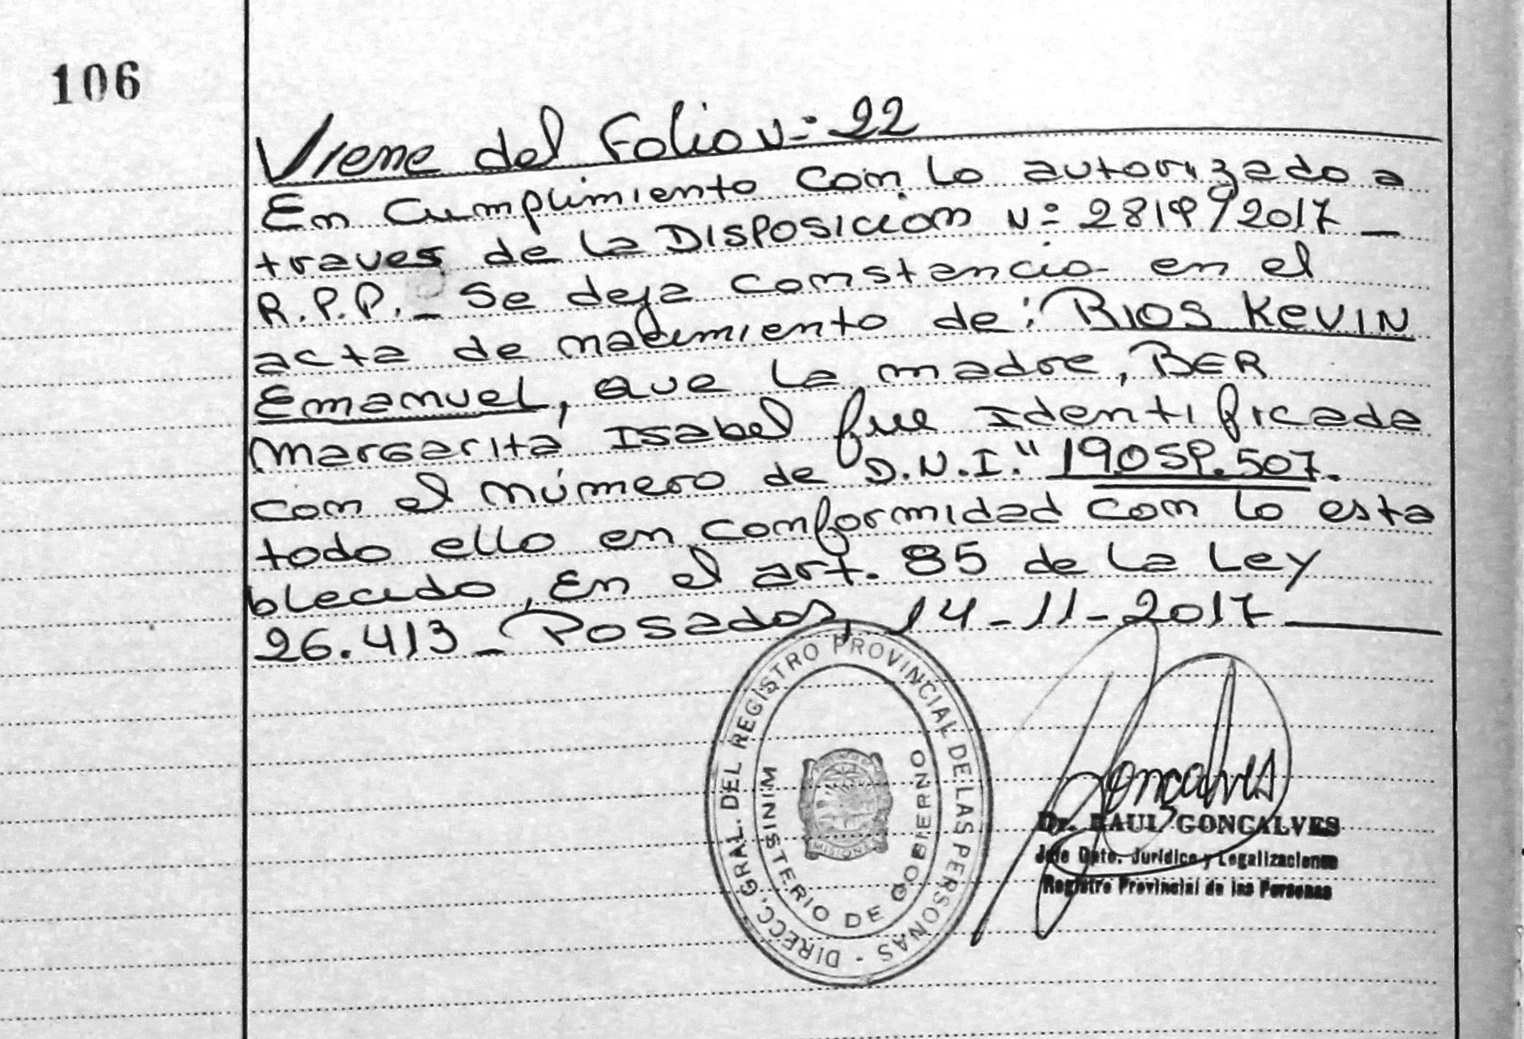 106
Viene del Folio N-: 22
En Cumplimiento con lo autorizado a
traves de la DISPOSICION N-: 2819/2017 _
R.P.P._ Se deja constancia en el
acta de nacimiento de: RIOS KEVIN
Emanuel, que la madre, BER
Margarita Isabel fue Identificada
con el número de D.N.I."
todo ello en conformidad con lo esta
blecido, En el art. 85 de la Ley
26.413_ Posadas, 14-11-2017
DIRECC. GRAL. DEL REGISTRO PROVINCIAL DE LAS PERSONAS -
MINISTERIO DE GOBIERNO
MISIONES
Goncalves
Dr. RAUL GONCALVES
Jefe Dpto. Jurídico y Legalizaciones
Registro Provincial de las Personas